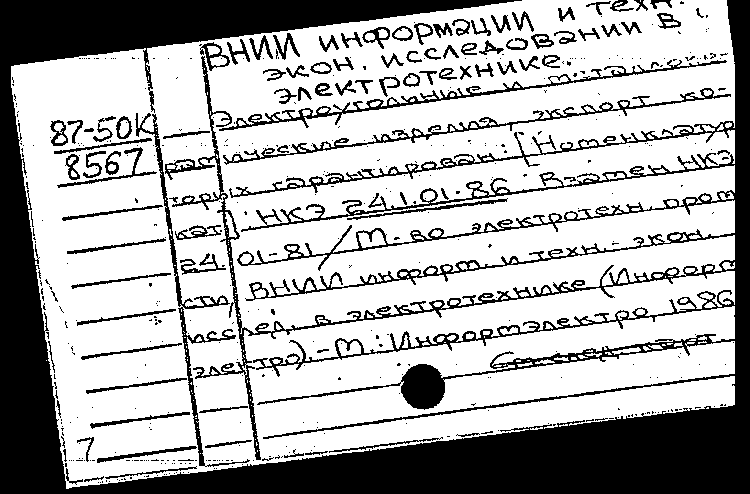 ВНИИ информации и техн.-
экон. исследовании в
электротехнике.
87-50К
8567
Электроугольные и металлоке-
рамические изделия, экспорт ко-
торых гарантирован: [Номенклатур.
кат]: НКЭ 24.1.01-86. Взамен НКЭ
24.01-81 / М-во электротехн. пром
сти, ВНИИ информ. и техн.-экон.
исслед. в электротехнике (Информ
электро).-М.: Информэлектро, 1986
См след. карт.
7